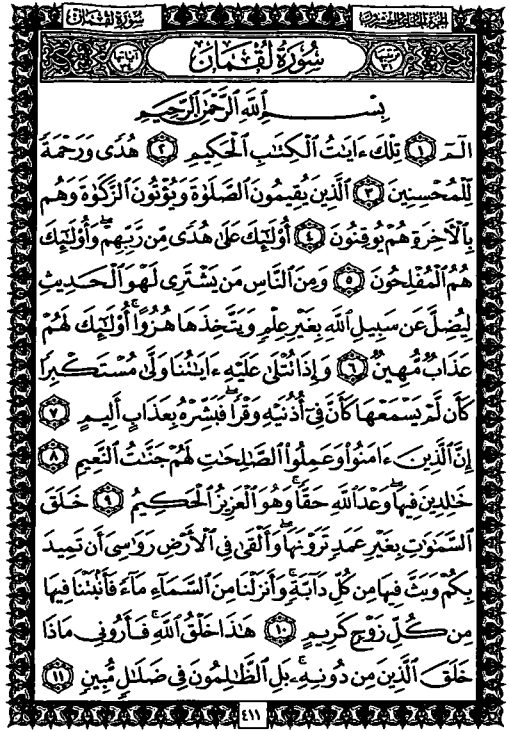 سُورَةُ لُقْمَان الجزء الحادي والعشرون
ترتيبها ٣١ سُورَةُ لُقْمَان آياتها ٣٤
بِسْمِ ٱللَّهِ ٱلرَّحْمَٰنِ ٱلرَّحِيمِ
الٓمٓ ١ تِلْكَ ءَايَٰتُ ٱلْكِتَٰبِ ٱلْحَكِيمِ ٢ هُدًى وَرَحْمَةً
لِّلْمُحْسِنِينَ ٣ ٱلَّذِينَ يُقِيمُونَ ٱلصَّلَوٰةَ وَيُؤْتُونَ ٱلزَّكَوٰةَ وَهُم
بِٱلْأَخِرَةِ هُمْ يُوقِنُونَ ٤ أُوْلَٰٓئِكَ عَلَىٰ هُدًى مِّن رَّبِّهِمْ ۖ وَأُوْلَٰٓئِكَ
هُمُ ٱلْمُفْلِحُونَ ٥ وَمِنَ ٱلنَّاسِ مَن يَشْتَرِى لَهْوَ ٱلْحَدِيثِ
لِيُضِلَّ عَن سَبِيلِ ٱللَّهِ بِغَيْرِ عِلْمٍ وَيَتَّخِذَهَا هُزُوًا ۚ أُوْلَٰٓئِكَ لَهُمْ
عَذَابٌ مُّهِينٌ ٦ وَإِذَا تُتْلَىٰ عَلَيْهِ ءَايَٰتُنَا وَلَّىٰ مُسْتَكْبِرًا
كَأَن لَّمْ يَسْمَعْهَا كَأَنَّ فِىٓ أُذُنَيْهِ وَقْرًا ۖ فَبَشِّرْهُ بِعَذَابٍ أَلِيمٍ ٧
إِنَّ ٱلَّذِينَ ءَامَنُوا۟ وَعَمِلُوا۟ ٱلصَّٰلِحَٰتِ لَهُمْ جَنَّٰتُ ٱلنَّعِيمِ ٨
خَٰلِدِينَ فِيهَا ۖ وَعْدَ ٱللَّهِ حَقًّا ۚ وَهُوَ ٱلْعَزِيزُ ٱلْحَكِيمُ ٩ خَلَقَ
ٱلسَّمَٰوَٰتِ بِغَيْرِ عَمَدٍ تَرَوْنَهَا ۖ وَأَلْقَىٰ فِى ٱلْأَرْضِ رَوَٰسِىَ أَن تَمِيدَ
بِكُمْ وَبَثَّ فِيهَا مِن كُلِّ دَآبَّةٍ ۚ وَأَنزَلْنَا مِنَ ٱلسَّمَآءِ مَآءً فَأَنۢبَتْنَا فِيهَا
مِن كُلِّ زَوْجٍ كَرِيمٍ ١٠ هَٰذَا خَلْقُ ٱللَّهِ فَأَرُونِى مَاذَا
خَلَقَ ٱلَّذِينَ مِن دُونِهِۦ ۚ بَلِ ٱلظَّٰلِمُونَ فِى ضَلَٰلٍ مُّبِينٍ ١١
٤١١